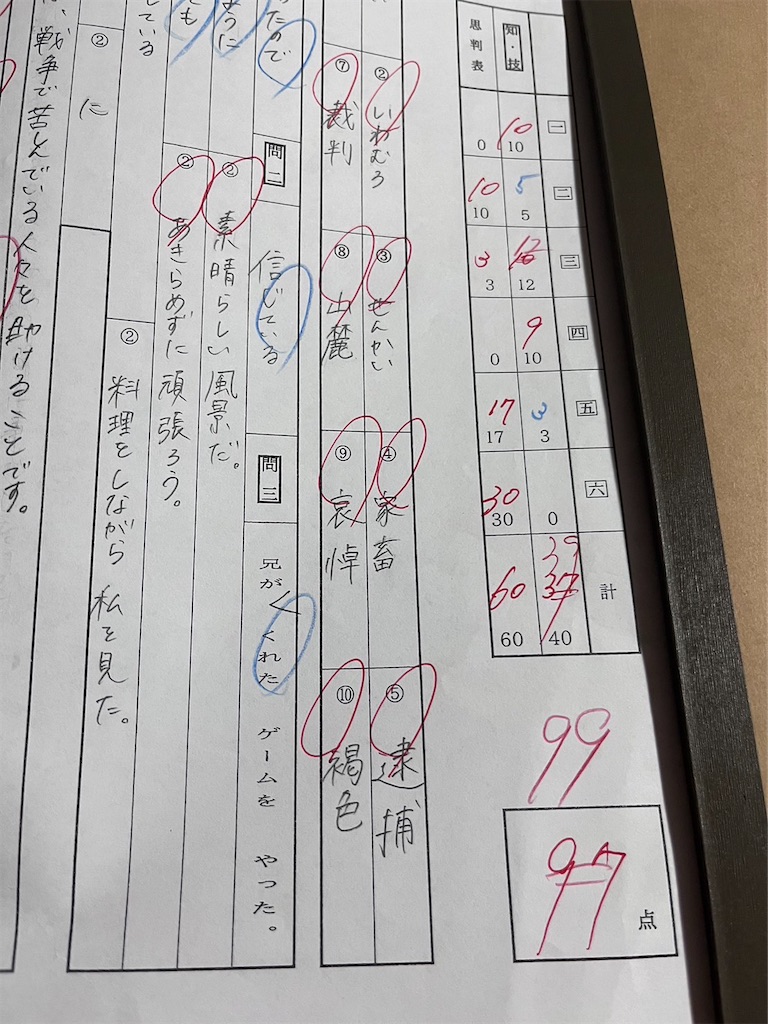 知・技
思判表
一
10
10
0
二
5
5
10
10
三
12
12
3
3
四
9
10
0
五
3
3
17
17
六
0
30
30
計
39
37
40
60
60
99
97
点
② いわむろ
③ せんかい
④ 家畜
⑤ 逮捕
⑦ 裁判
⑧ 山麓
⑨ 哀悼
⑩ 褐色
たので
問二
信じている
問三
兄がくれたゲームをやった。
② 素晴らしい風景だ。
② あきらめずに頑張ろう。
している
② 料理をしながら私を見た。
② に
戦争で苦しんでいる人々を助けることです。